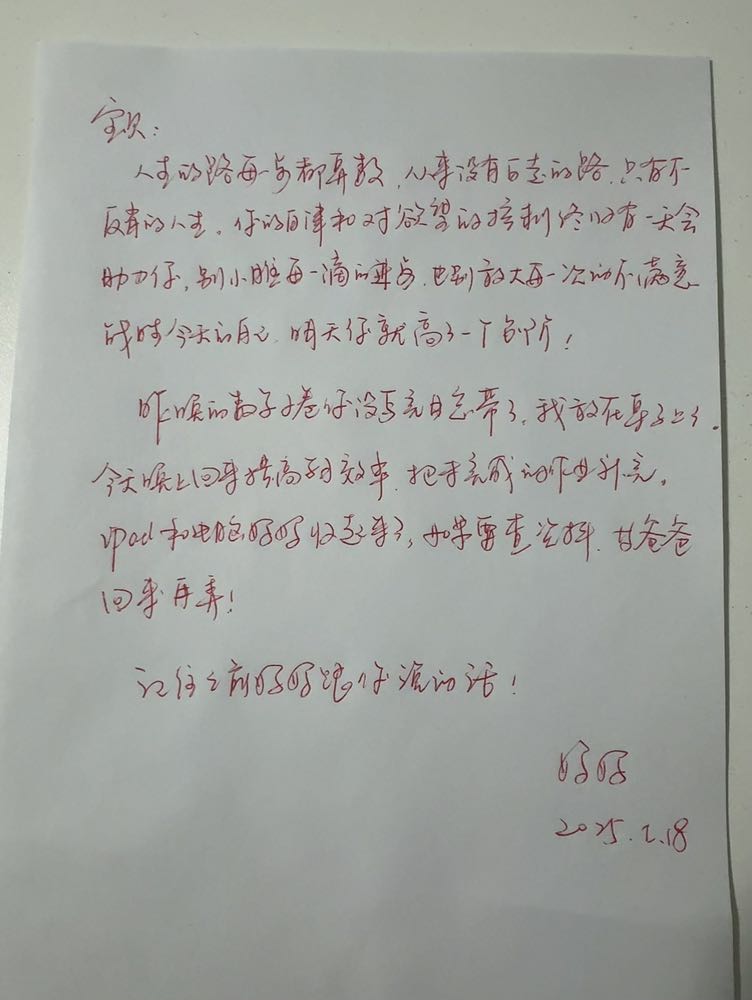 宝贝：
人生的路每一步都算数，从来没有白走的路，只有不
反省的人生。你的自律和对欲望的控制终将有一天会
助力你，别小瞧每一滴的进步，也别放大每一次的不满意
战胜今天的自己，明天你就高了一个台阶！
昨晚的数学卷你没写完且忘带了，我放在桌子上了。
今天晚上回来提高学习效率，把未完成的作业补完。
ipad和电脑妈妈收起来了，如果要查资料，等爸爸
回来再弄！
记住之前妈妈跟你说的话！
妈妈
2025.2.18